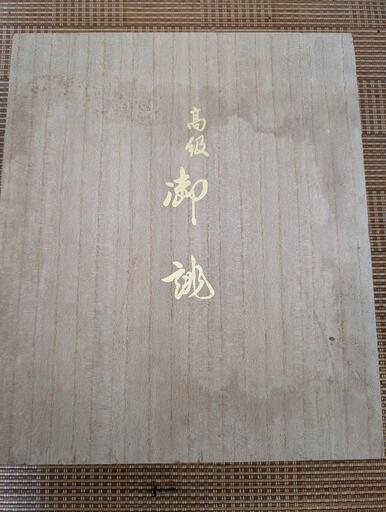 高級
御
誂